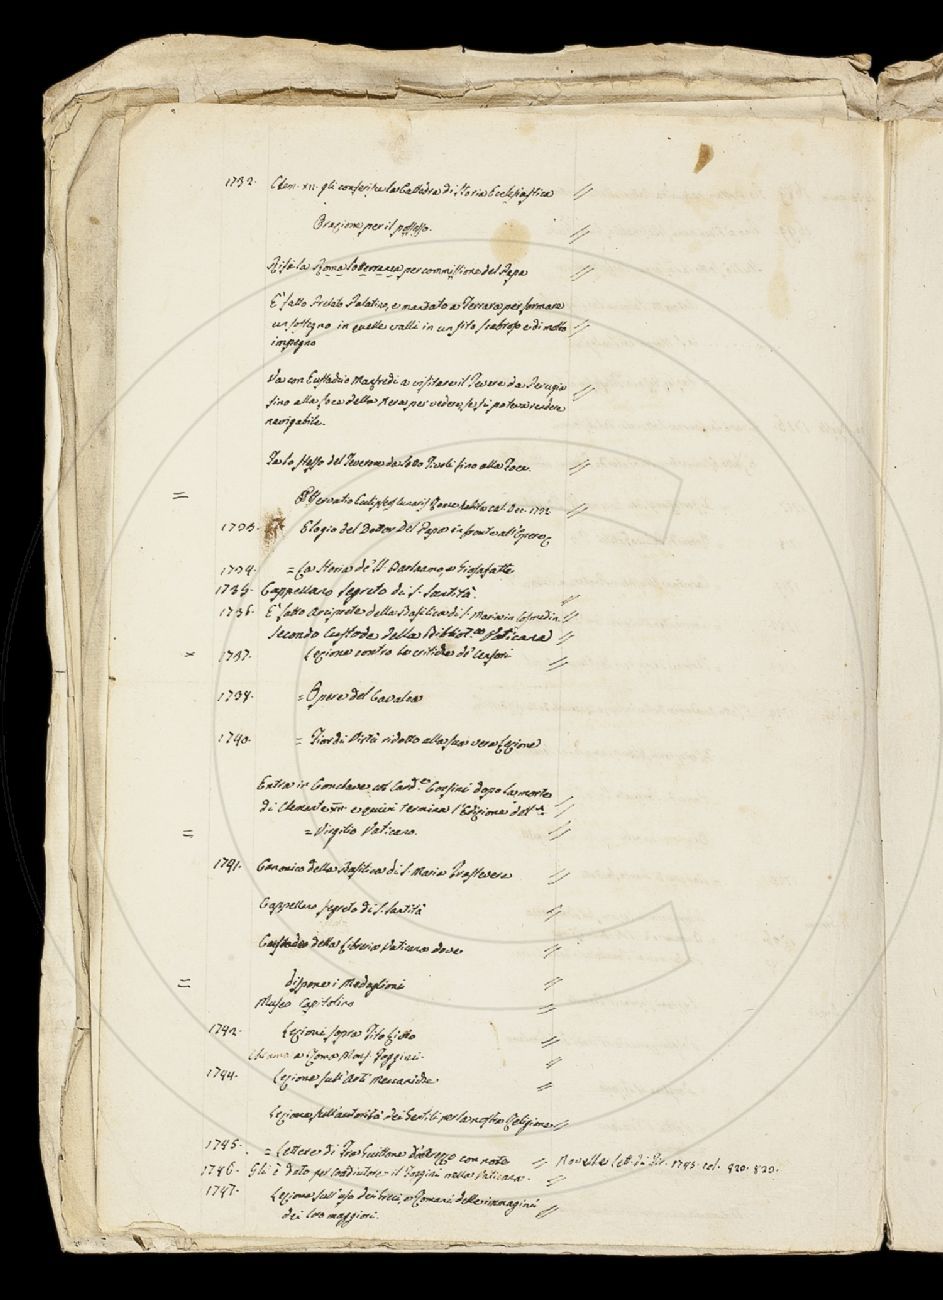 1732. Clem. XII. gli conferisce la Cattedra di Storia Ecclesiastica //
Orazione per il possesso. //
Rifà la Roma sotterranea per commissione del Papa //
E' fatto Prelato Palatino, e mandato a Ferrara per formare
un sostegno in quelle valli in un sito scabroso e di molto //
impegno
Va con Eustachio Manfredi a visitare il Tevere da Perugia
fino alla foce della Nera per vedere, se si poteva rendere //
navigabile.
Fa lo stesso del Teverone da sotto Tivoli fino alla Foce. //
= Observatio Eclipsis Lunaris Romae habita cal. Dec. 1732 //
1733. Elogio del Dottor Del Papa in fronte all'Opere
1734. = La Storia de' SS. Barlaamo, e Giosafatte
1735. Cappellano segreto di S. Santità //
1736. E' fatto Arciprete della Basilica di S. Maria in Cosmedin //
Secondo Custode della Bibliot.ca Vaticana //
1737. Lezione contro le critiche de' Censori //
1738. = Opere del Cavalca
1740. = Fior di Virtù ridotto alla sua vera Lezione
Entra in Conclave col Card.e Corsini dopo la morte
di Clemente XII e quivi termina l'Edizione dell' //
= Virgilio Vaticano. //
=
1741. Canonico della Basilica di S. Maria Trastevere //
Cappellano segreto di S. Santità //
Custode della Libreria Vaticana dove //
= dispone i Medaglioni //
Museo Capitolino //
1742. Lezioni sopra Tito Livio //
Chiama a Roma Mons. Foggini. //
1744. Lezione sull'Arti Meccaniche //
Lezione sull'autorità dei Gentili per la nostra Religione //
1745. = Lettere di Fra Guittone d'Arezzo con note // Novelle Lett. di Fir. 1745. col. 820. 833.
1746. Gli è dato per Coadiutore il Foggini nella Vaticana. //
1747. Lezione sull'uso dei Greci, e Romani delle immagini //
dei loro maggiori.